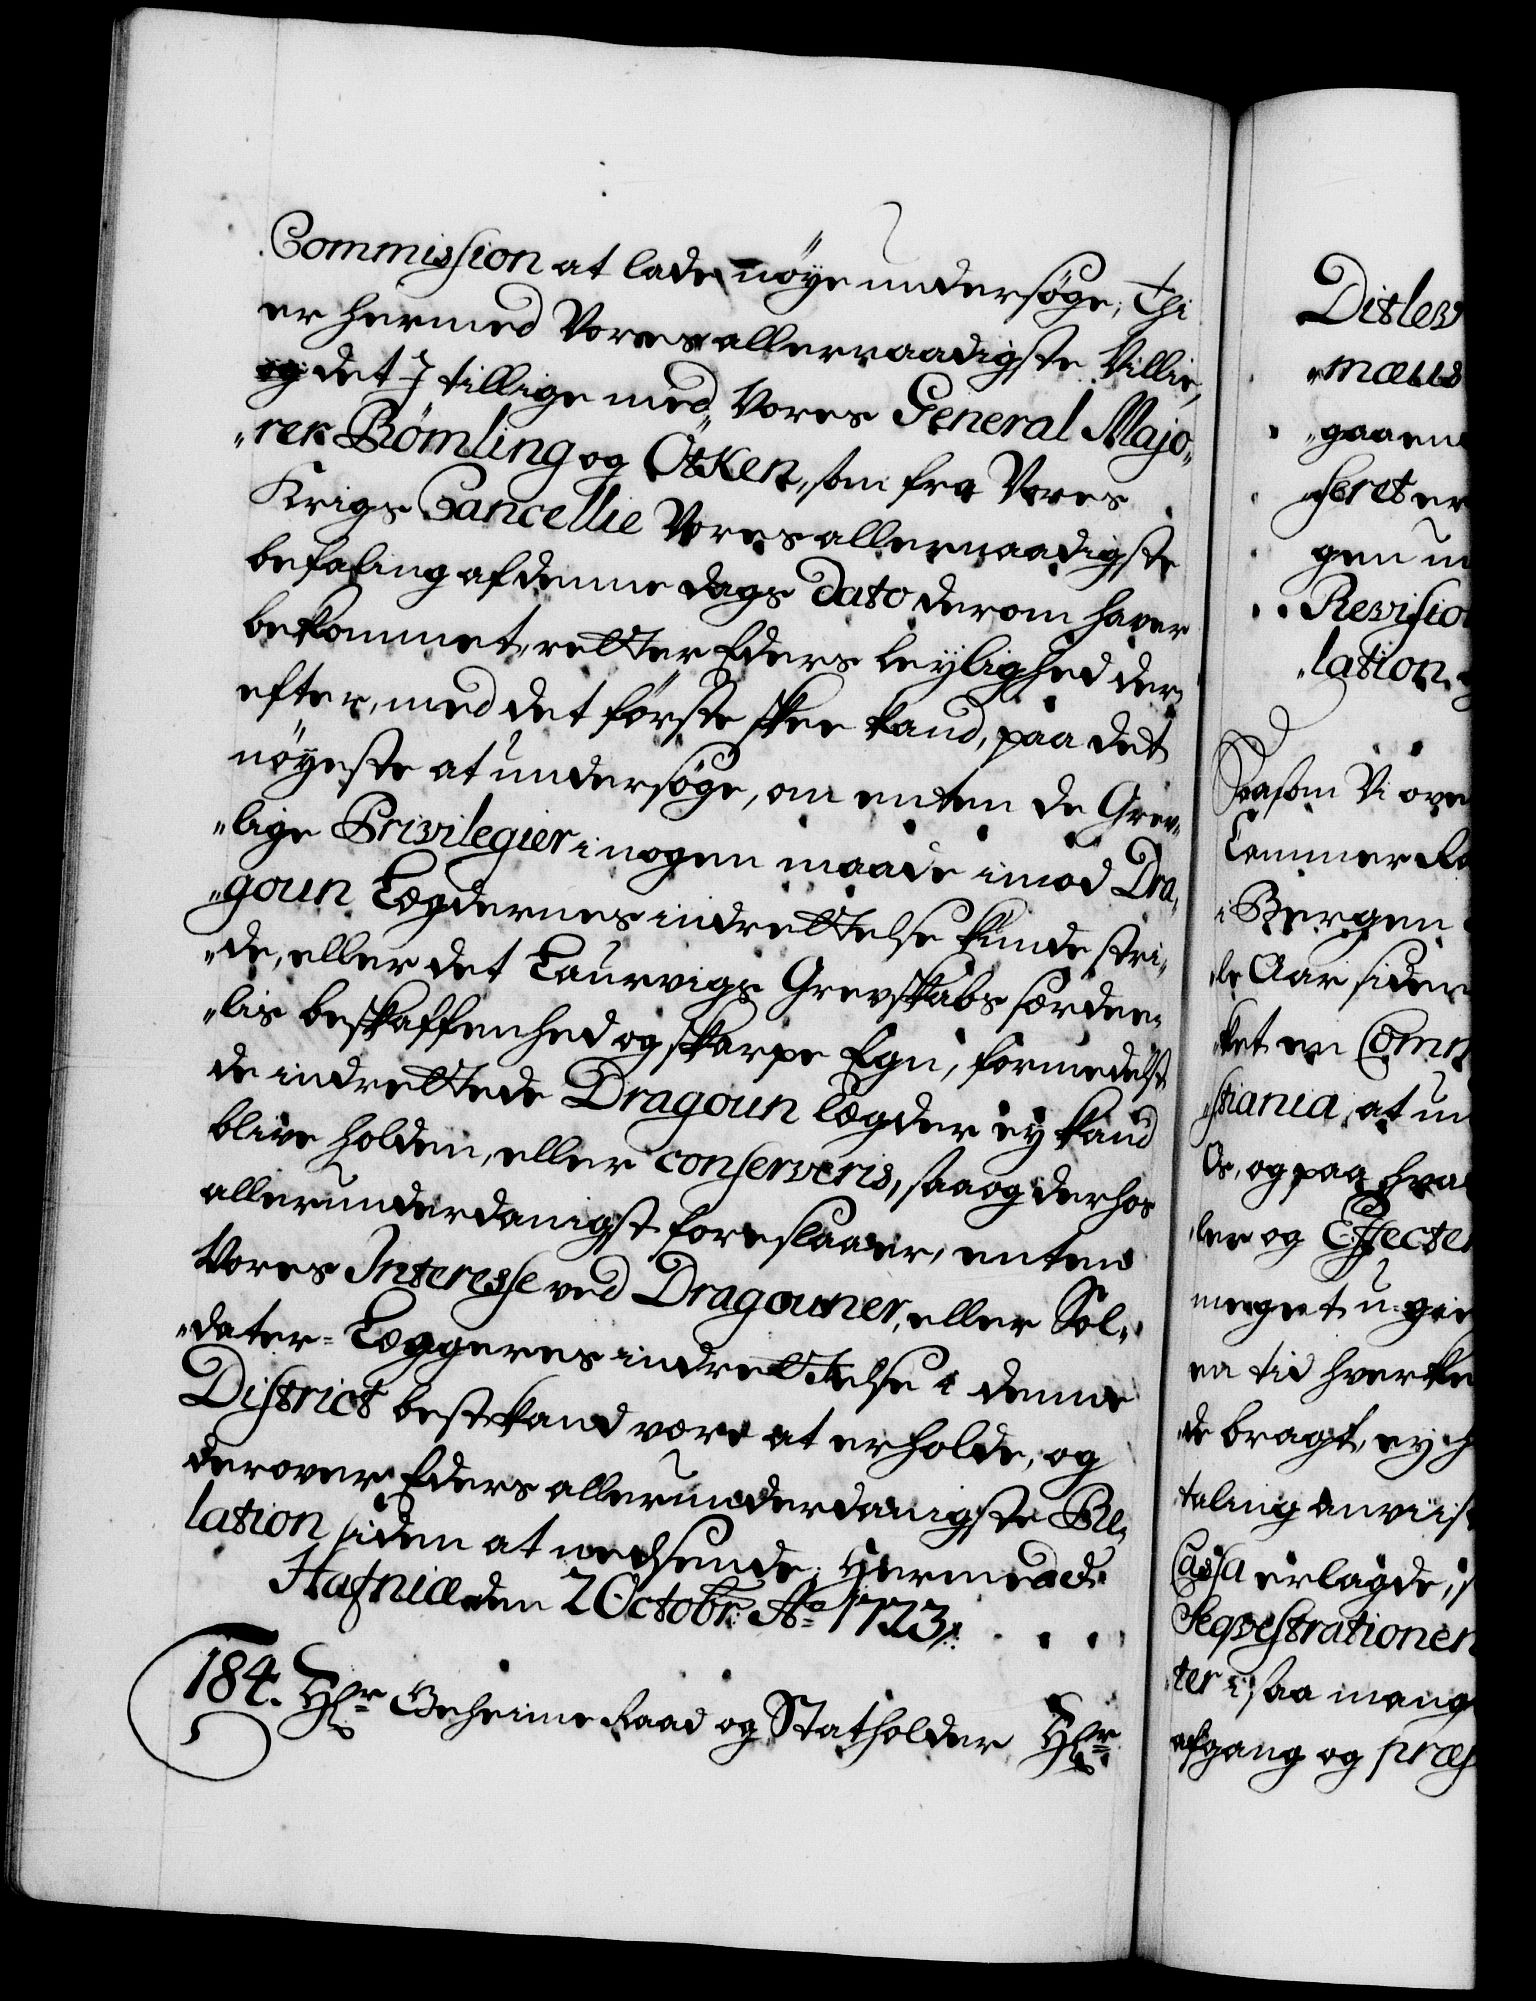 Commission at lade nöye undersöge; Thi
er hermed Vores allernaadigste Villie,
og det I tillige med Vores General Majo-
"rer Römling og Ötken, som fra Vores
Krigs Cancellie Vores allernaadigste
befaling af denne dags Dato derom haver
bekommet, retter Eders leylighed der-
efter, med det förste skee kand, paa det
nöyeste at undersöge, om enten de Grev-
"lige Privilegier i nogen maade imod Dra-
"goun Lægdernes indrettelse kunde stri-
"de, eller det Laurvigs Grevskabs særdee-
"lis beskaffenhed og skarpe Egn, formedelst
de indrettede Dragoun Lægder ey kand
blive holden, eller conserveris, saa og derhos
allerunderdanigst foreslaaer, enten
Vores Interesse ved Dragouner, eller Sol-
"dater-Læggernes indrettelse i denne
District best kand være at erholde, og
derover Eders allerunderdanigste Re-
lation siden at nedsende; Hermed etc
Hafniæ den 2 Octobr: Ao 1723.
184. Hr Geheime Raad og Statholder Hr
Ditlev
gaaen
seret er
gen
Revisio
lation
Saasom Vi ove
Cammer
i Bergen
"le Aar siden
"ket en Com
"stiania, at un
Os, og paa hva
"ler og Effecte
meget u-gie
en tid hverke
"de bragt, ey h
"taling anviist
Cassa erlagde, s
Seqvestrationen
"ter i saa mang
afgang og præ